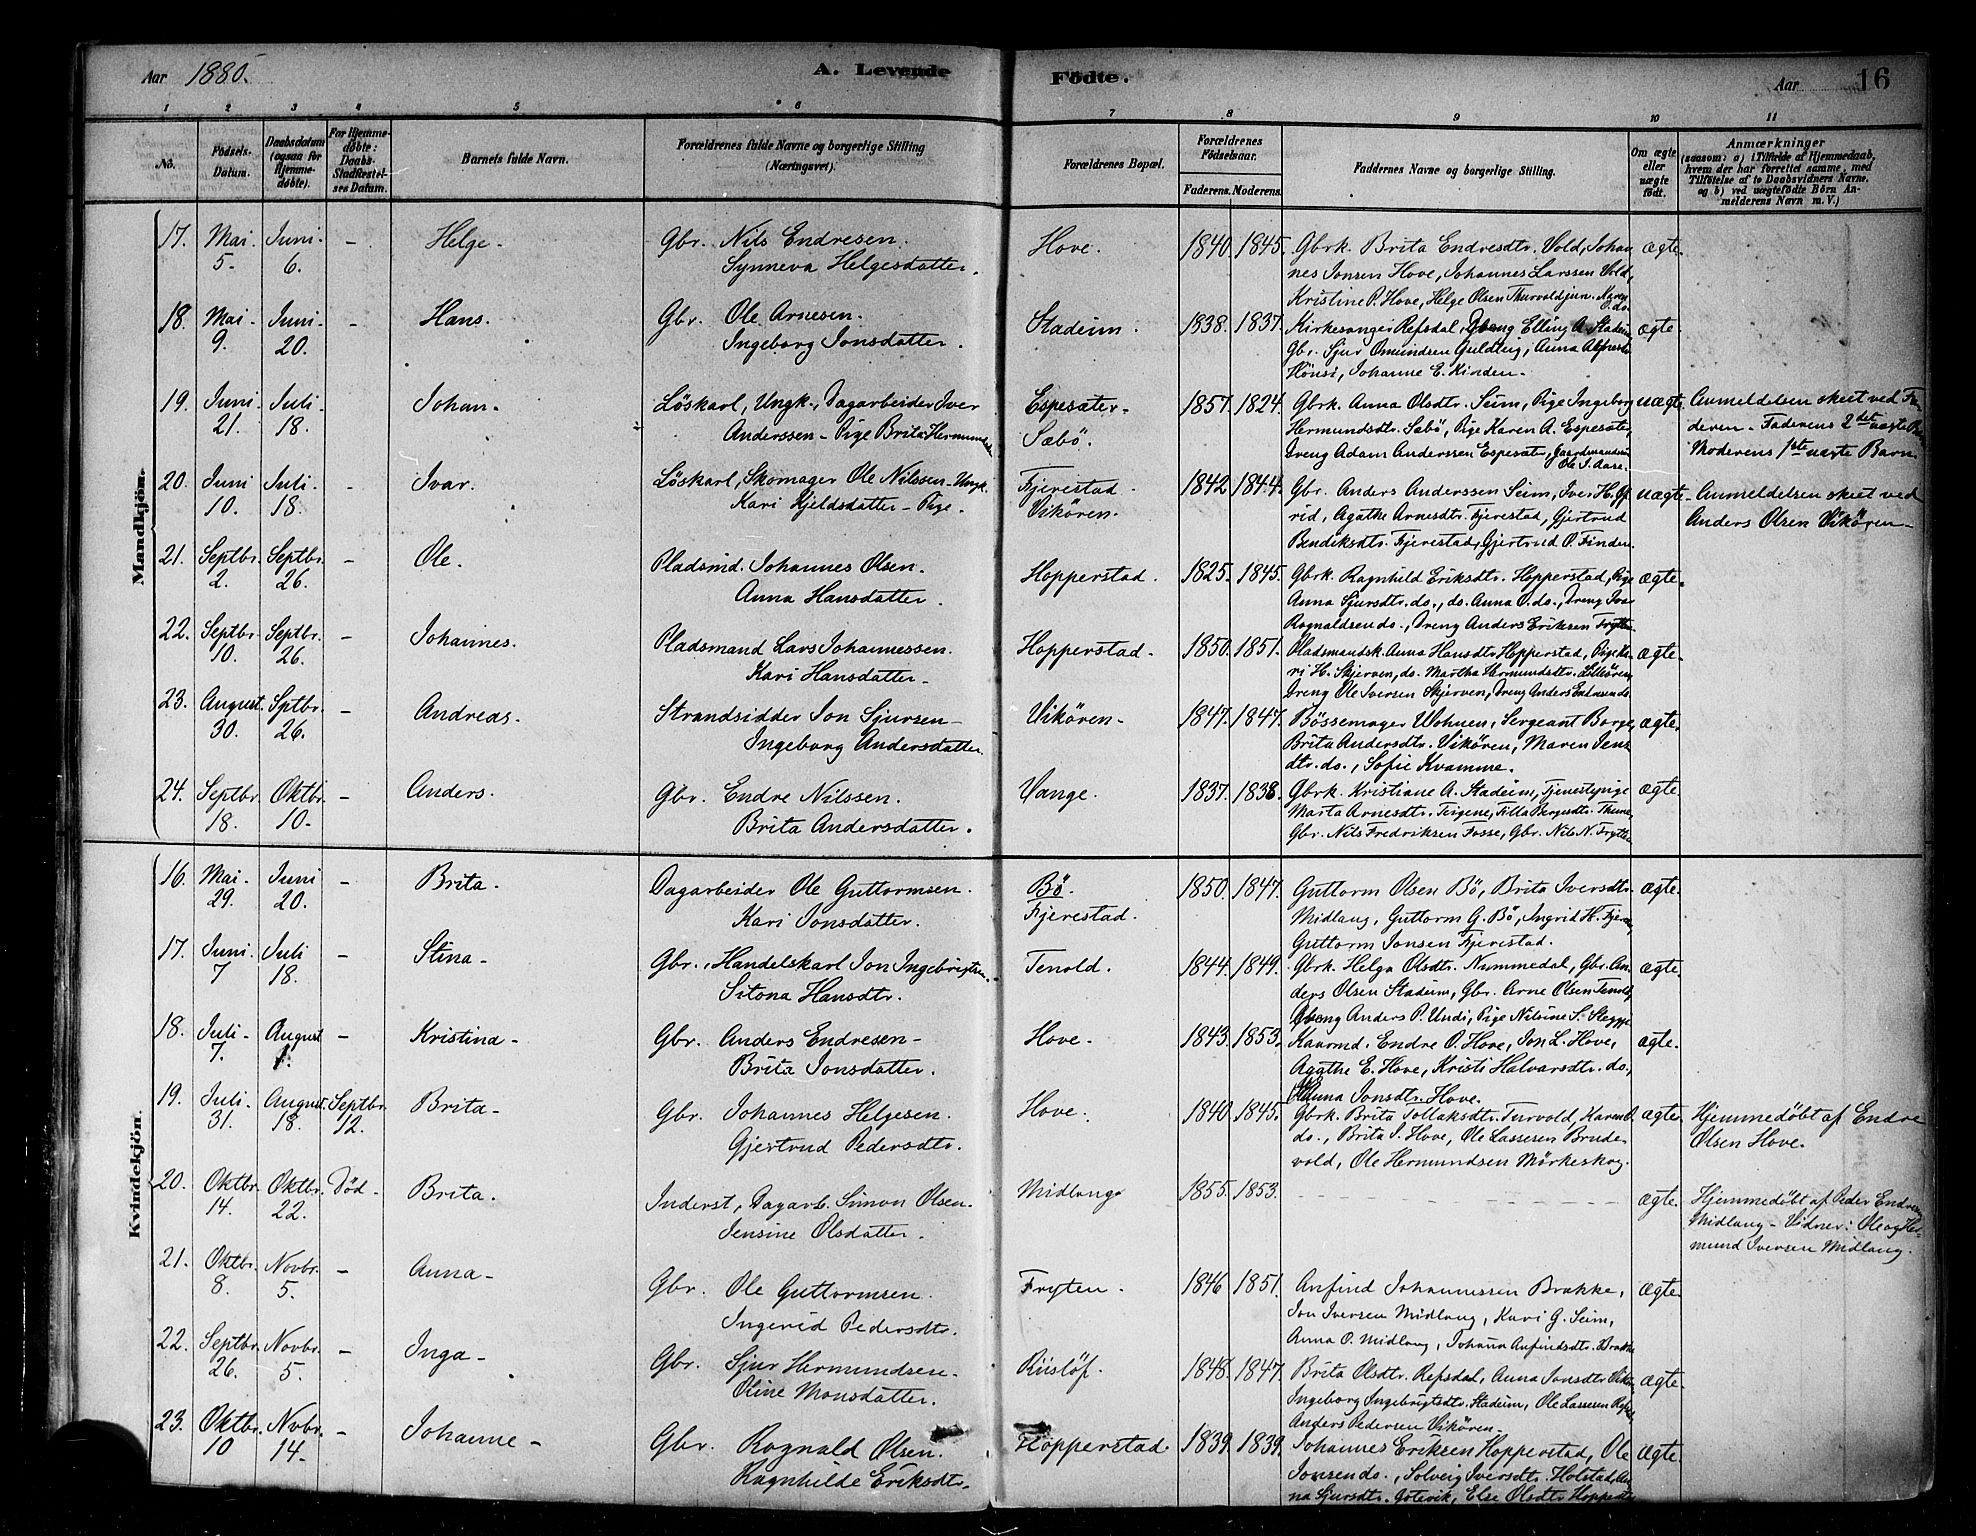 Aar 1880.
A. Levende Födte.
Aar 16
1 2 3 4 5 6 7 8 9 10 11
No.
Födsels-Datum.
Daabsdatum (ogsaa for Hjemme-döbte).
For Hjemme-döbte: Daabs-Stadfæstel-ses Datum.
Barnets fulde Navn.
Forældrenes fulde Navne og borgerlige Stilling (Næringsvei).
Forældrenes Bopæl.
Forældrenes Födselsaar.
Faderens. Moderens.
Faddernes Navne og borgerlige Stilling.
Om ægte eller uægte födt.
Anmærkninger
(saasom: a) i Tilfælde af Hjemmedaab, hvem der har forrettet samme, med Tilföielse af to Daabsvidners Navne, og b) ved uægtefödte Börn An-melderens Navn m. V.)
Mandkjön.
17. Mai 5. Juni 6. - Helge. Gbr. Nils Endresen. Hove. 1840. 1845. Gbrk. Brita Endresdtr. Vold, Johan ægte.
Synneva Helgesdatter. nes Jonsen Hove, Johannes Larssen Vold,
Kristine P. Hove, Helge Olsen Thurvold
18. Mai 9. Juni 20. - Hans. Gbr. Ole Arnesen. Stadeim. 1838. 1837. Kirkesanger Refsdal, Dreng Elling A. Stadeim, ægte.
Ingeborg Jonsdatter. Gbr. Sjur Omundsen Guldteig, Anna
Hönsi, Johanne E. Kinden.
19. Juni 21. Juli 18. - Johan. Löskarl, Ungk., Dagarbeider Iver Espesæter. 1857. 1824. Gbrk. Anna Olsdtr. Seim, Pige Ingeborg uægte. Anmeldelsen skeet ved Fa
Anderssen - Pige Brita Hermundsdtr. Sæbö. Hermundsdtr. Sæbö, Pige Karen A. Espesæter, deren - Faderens 2det uægte Barn
Dreng Adam Anderssen Espesæter, Moderens 1ste uægte Barn.
20. Juni 10. Juli 18. - Ivar. Löskarl, Skomager Ole Nilssen - Ungk. Fjerestad. 1842 1844. Gbr. Anders Anderssen Seim, Iver H. uægte Anmeldelsen skeet ved
Kari Kjeldsdatter - Pige. Vikören. rid, Agathe Arnesdtr. Fjerestad, Gjertrud Anders Olsen Vikören
Bendiksdtr. Fjerestad, Gjertrud O. Finden.
21. Septbr. 2. Septbr. 26. - Ole. Pladsmd. Johannes Olsen. Hopperstad. 1825. 1845. Gbrk. Ragnhild Eriksdtr. Hopperstad, Pige ægte.
Anna Hansdatter. Anna Sjursdtr. do., do. Anna O. do., Dreng
Ragnaldsen do., Dreng Anders Eriksen
22. Septbr. 10. Septbr. 26. - Johannes. Pladsmand Lars Johannessen. Hopperstad. 1850. 1851. Pladsmandsk. Anna Hansdtr. Hopperstad, Pige Ka ægte.
Kari Hansdatter. ri H. Skjerven, do. Martha Hermundsdtr.
Dreng Ole Iversen Skjerven, Dreng Anders
23. August. 30. Sptbr. 26. - Andreas. Strandsidder Jon Sjursen Vikören. 1847. 1847. Bössemager Wohnen, Sergeant Borge, ægte.
Ingeborg Andersdatter Brita Andersdtr. Vikören, Maren Jens
dtr. do., Sofie Kvamme.
24. Septbr. 18. Oktbr. 10. - Anders. Gbr. Endre Nilssen. Vange. 1837. 1838. Gbrk. Kristiane A. Stadeim, Tjenestepige ægte
Brita Andersdatter. Marta Arnesdtr.
Gbr. Nils Fredriksen Fosse, Gbr. Nils N.
Kvindekjön.
16. Mai. 29. Juni 20. - Brita. Dagarbeider Ole Guttormsen. Bö. 1850. 1847. Guttorm Olsen Bö, Brita Iversdtr. ægte.
Kari Jonsdatter. Fjerestad. Midlang, Guttorm G. Bö, Ingrid H.
Guttorm Jonsen Fjerestad.
17. Juni 7 Juli 18. - Stina. Gbr., Handelskarl Jon Ingebrigtsen. Tenold. 1844. 1849. Gbrk. Helga Olsdtr. Nummedal, Gbr. An ægte.
Sitona Hansdtr. ders Olsen Stadeim, Gbr. Arne Olsen Tenold,
Dreng Anders P. Undi, Pige Nilsine S.
18. Juli 7. August 1. - Kristina. Gbr. Anders Endresen. Hove. 1843. 1853. Kaarmd. Endre O. Hove, Jon L. Hove, ægte.
Brita Jonsdatter. Agathe E. Hove, Kristi Halvarsdtr. do.,
Anna Jonsdtr. Hove.
19. Juli 31. August. 18. Septbr. 12. Brita. Gbr. Johannes Helgesen. Hove. 1840. 1845. Gbrk. Brita Tollaksdtr. Turvold, ægte Hjemmedöbt af Endre
Gjertrud Pedersdtr. do., Brita I. Hove, Ole Lassesen Brude Olsen Hove.
vold, Ole Hermundsen Mörkeskog.
20. Oktbr. 14. Oktbr. 22. Död. Brita. Inderst, Dagarb. Simon Olsen. Midlang 1855. 1853. ægte. Hjemmedöbt af Peder
Jensine Olsdatter. Midlang - Vidner: Ole og Her-
mund Iversen Midlang.
21. Oktbr. 8. Novbr. 5. - Anna. Gbr. Ole Guttormsen. Fryten. 1846 1851. Anfind Johannessen Brakke, ægte.
Ingerid Pedersdtr. Jon Iversen Midlang, Kari G. Seim,
Anna O. Midlang, Johana Anfindsdtr. Brakke
22. Septbr. 26. Novbr. 5. - Inga. Gbr. Sjur Hermundsen. 1848. 1847. Brita Olsdtr. Refsdal, Anna Jonsdtr. ægte.
Oline Monsdatter. Ingeborg Ingebrigtsdtr. Stadeim, Ole Lassesen
Anders Pedersen Vikören.
23. Oktbr. 10 Novbr. 14. - Johanne. Gbr. Ragnald Olsen. Hopperstad. 1839. 1839. Johannes Eriksen Hopperstad, Ole ægte.
Ragnhilde Eriksdtr. Jonsen do., Solveig Iversdtr. Holstad, An
na Sjursdtr. Else Olsdtr.